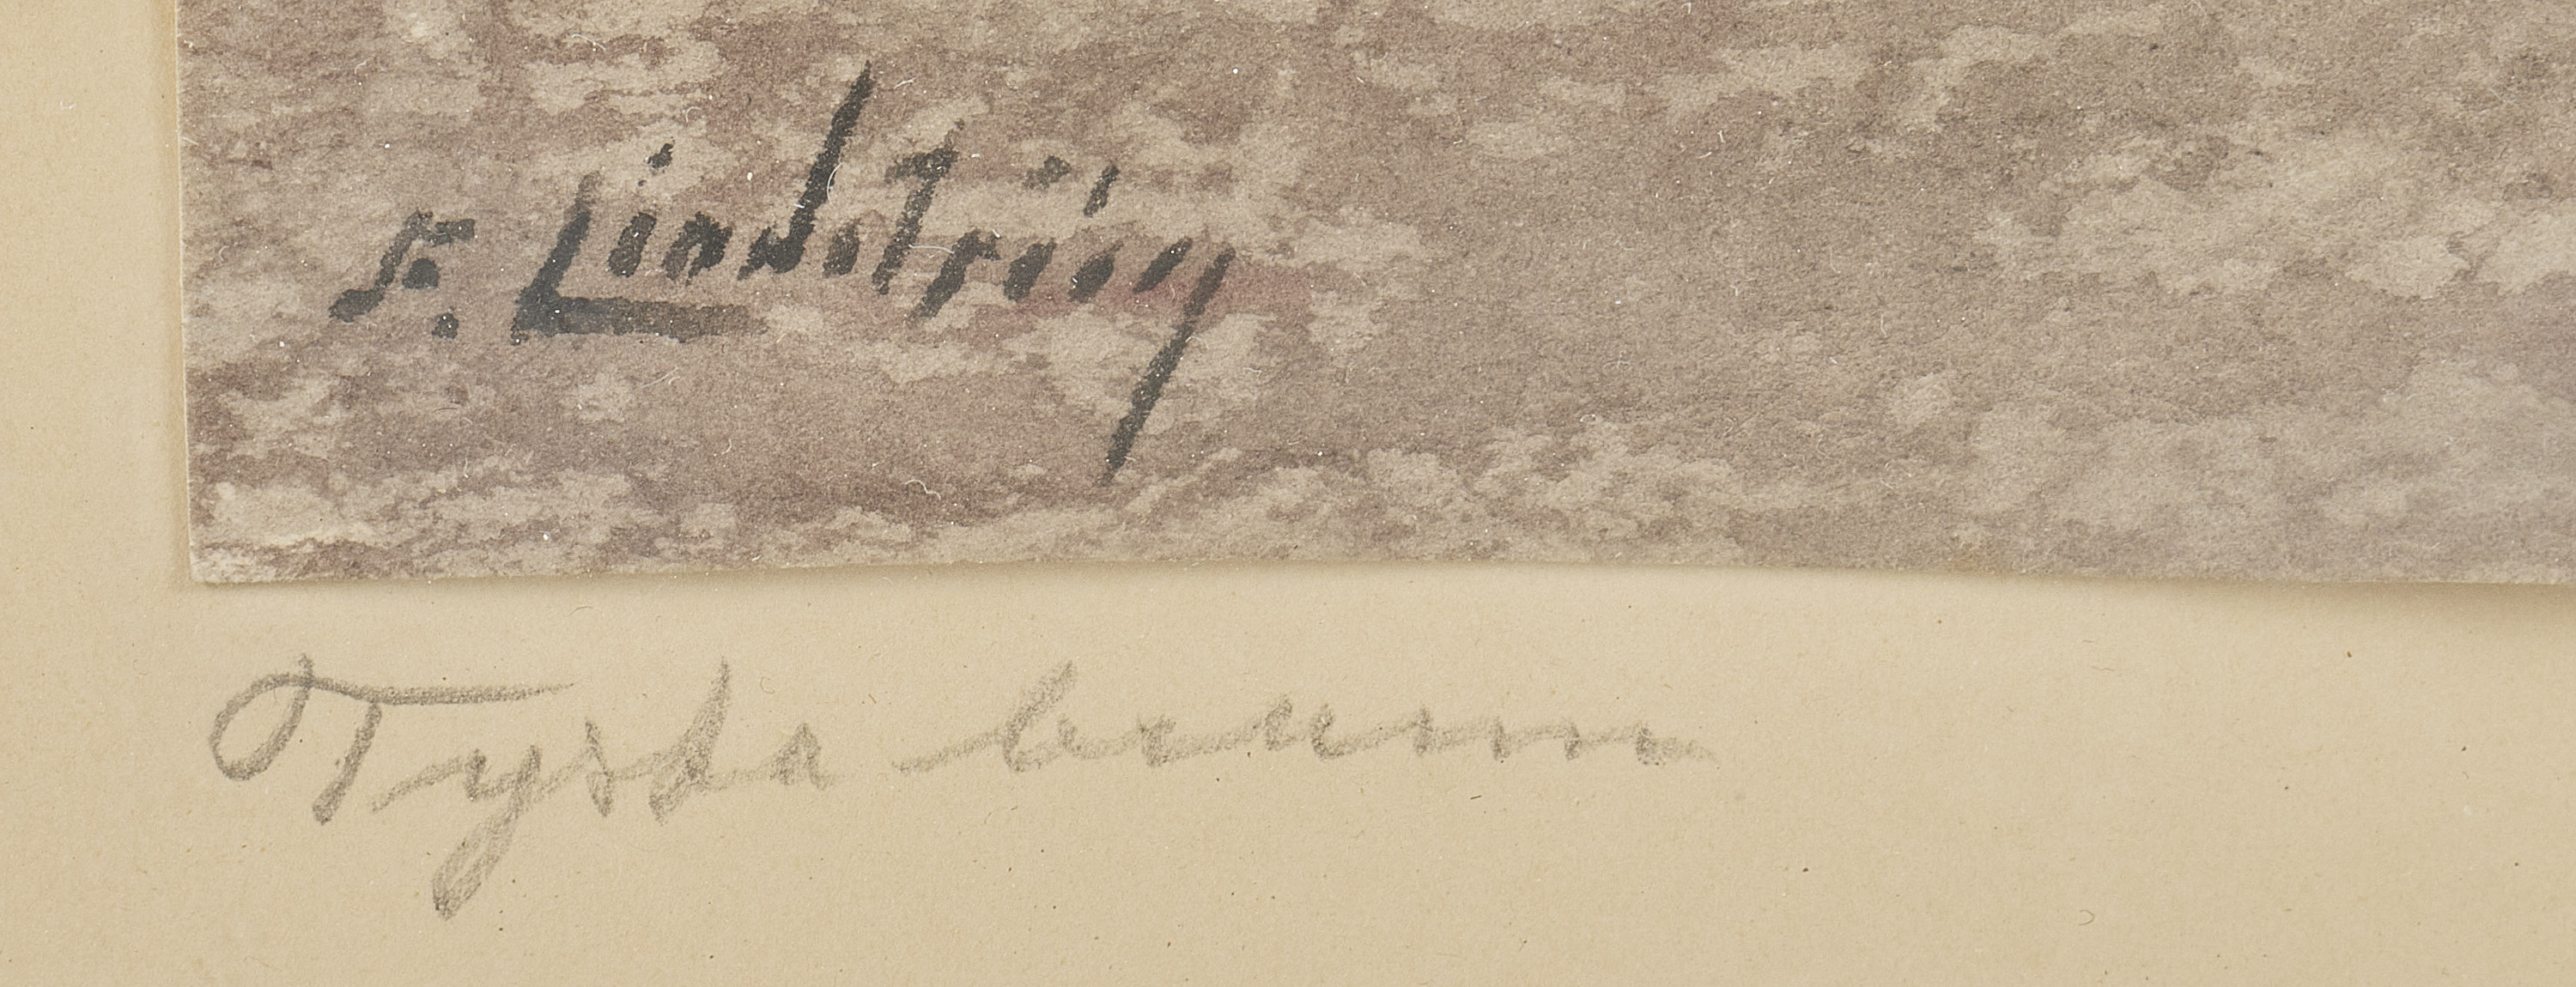 F. Lindström
Tysta brunn